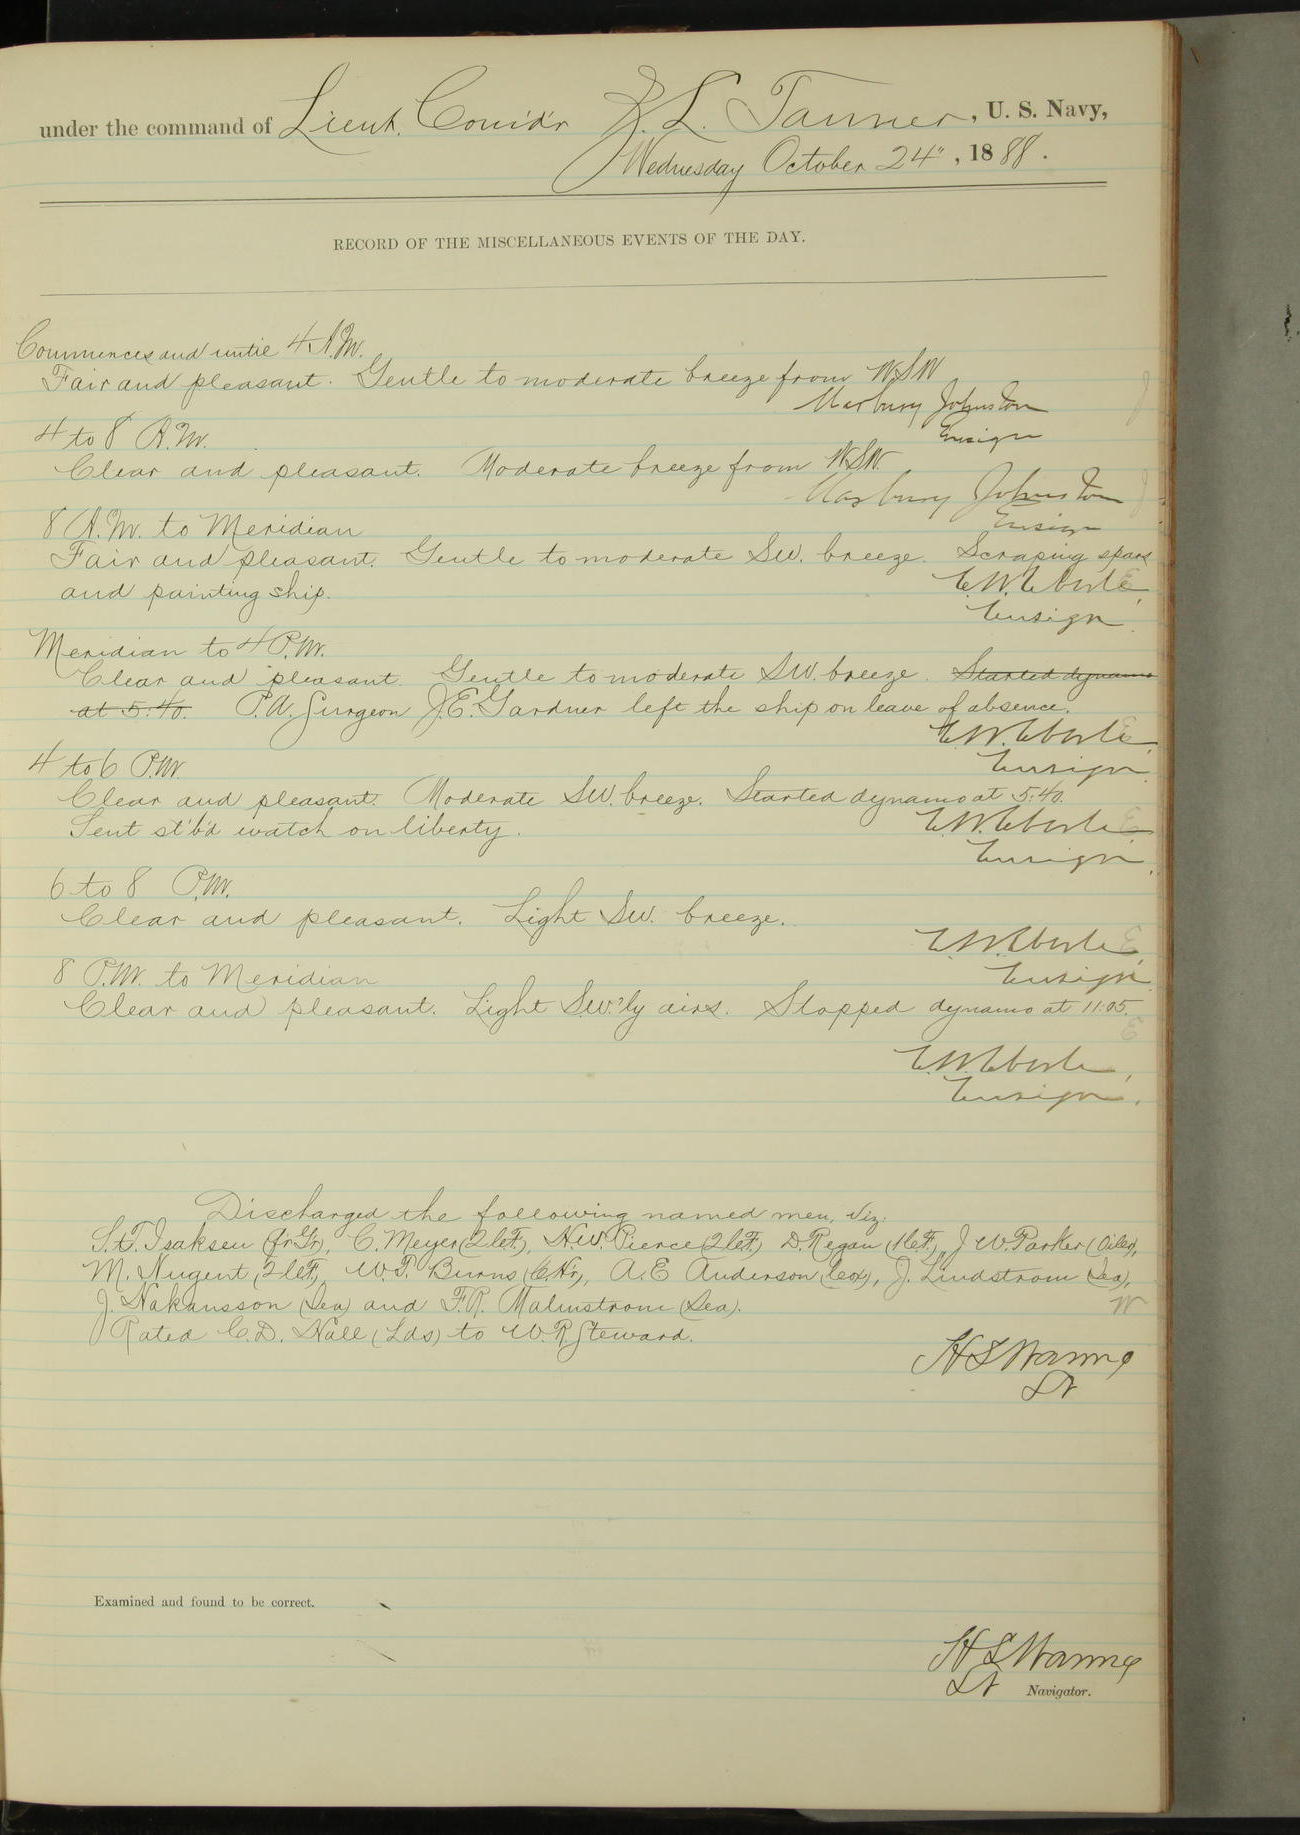 under the command of Lieut. Comd'r Z. L. Tanner, U. S. Navy,
Wednesday October 24", 1888.
RECORD OF THE MISCELLANEOUS EVENTS OF THE DAY.
Commences and until 4 A.M.
Fair and pleasant. Gentle to moderate breeze from WSW
Marbury Johnston
Ensign
4 to 8 A.M.
Clear and pleasant. Moderate breeze from WSW.
Marbury Johnston
Ensign
8 A.M. to Meridian
Fair and pleasant. Gentle to moderate SW. breeze. Scraping spars
and painting ship.
E.W. Eberle,
Ensign.
Meridian to 4 P.M.
Clear and pleasant. Gentle to moderate SW. breeze. Started dynamo
at 5:40. P.A. Surgeon J.E. Gardner left the ship on leave of absence.
E.W. Eberle,
Ensign.
4 to 6 P.M.
Clear and pleasant. Moderate SW. breeze. Started dynamo at 5:40.
Sent st'b'd watch on liberty.
E.W. Eberle
Ensign.
6 to 8 P.M.
Clear and pleasant. Light SW. breeze.
E.W. Eberle,
Ensign.
8 P.M. to Meridian
Clear and pleasant. Light S.W.'ly airs. Stopped dynamo at 11:05.
E.W. Eberle,
Ensign.
Discharged the following named men, viz:
S.T. Isaksen C. Meyer (2 cl F.), H.W. Pierce (2 cl F.) D. Regan (1 cl F.), J W. Parker (Oiler),
M. Nugent (2 cl F), W.F. Burns A.E Anderson (Cox), J. Lindstrom (Sea),
J. Hakansson (Sea) and F.R. Malmstrom (Sea).
Rated C.D. Hall (Lds) to W.R. Steward.
H S Waring
Lt
Examined and found to be correct.
H S Waring
Lt Navigator.